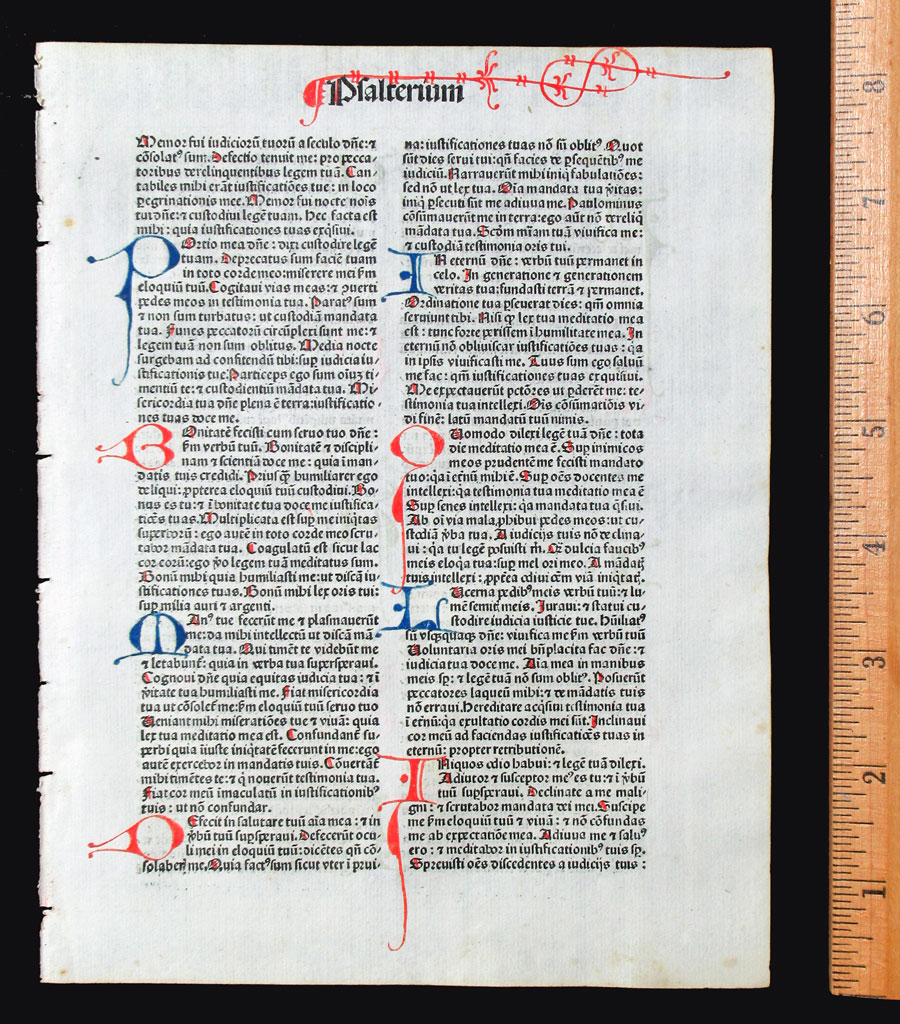 Psalterium
Memor fui iudiciorū tuorū a seculo dñe: ⁊
cōsolatꝰ sum. Defectio tenuit me: pro pecca-
toribus derelinquentibus legem tuā. Can-
tabiles mihi erāt iustificatiōes tue: in loco
ꝑegrinationis mee. Memor fui nocte nois
tui dñe: ⁊ custodiui legē tuam. Hec facta est
mihi: quia iustificationes tuas exq̄siui.
POrtio mea dñe: dixi custodire legē
tuam. Deprecatus sum faciē tuam
in toto corde meo: miserere mei ẜm
eloquiū tuū. Cogitaui vias meas: ⁊ ꝯuerti
pedes meos in testimonia tua. Paratꝰ sum
⁊ non sum turbatus: ut custodiam mandata
tua. Funes peccatorū circūplexi sunt me: ⁊
legem tuā non sum oblitus. Media nocte
surgebam ad confitendū tibi: suꝑ iudicia iu-
stificationis tue. Particeps ego sum oīuꝫ ti-
mentiū te: ⁊ custodientiū mādata tua. Mi-
sericordia tua dñe plena ē terra: iustificatio-
nes tuas doce me.
BOnitatē fecisti cum seruo tuo dñe:
ẜm verbū tuū. Bonitatē ⁊ discipli-
nam ⁊ scientiā doce me: quia ī man-
datis tuis credidi. Priusꝙ̄ humiliarer ego
deliqui: ꝓpterea eloquiū tuū custodiui. Bo-
nus es tu: ⁊ ī bonitate tua doce me iustifica-
tiōes tuas. Multiplicata est suꝑ me iniq̇tas
superborū: ego autē in toto corde meo scru-
tabor mādata tua. Coagulatū est sicut lac
cor eorū: ego v̄o legem tuā meditatus sum.
Bonū mihi quia humiliasti me: ut discā iu-
stificationes tuas. Bonū mihi lex oris tui:
suꝑ milia auri ⁊ argenti.
MAnꝰ tue fecerūt me ⁊ plasmauerūt
me: da mihi intellectū ut discā mā-
data tua. Qui timēt te videbūt me
⁊ letabunt̄: quia in verba tua supersperaui.
Cognoui dñe quia equitas iudicia tua: ⁊ ī
v̄itate tua humiliasti me. Fiat misericordia
tua ut cōsolet̄ me: ẜm eloquiū tuū seruo tuo
Ueniant mihi miseratiōes tue ⁊ viuā: quia
lex tua meditatio mea est. Confundant̄ su-
perbi quia īiuste iniq̇tatē fecerunt in me: ego
autē exercebor in mandatis tuis. Cōuertāt̄
mihi timētes te: ⁊ q̇ nouerūt testimonia tua.
Fiat cor meū imaculatū in iustificationibꝰ
tuis: ut nō confundar.
DEfecit in salutare tuū aīa mea: ⁊ in
v̄bū tuū suꝑsperaui. Defecerūt ocu-
li mei in eloquiū tuū: dicētes qn̄ cō-
solaberꝭ me. Quia factꝰ sum sicut vter ī prui-
na: iustificationes tuas nō sū oblitꝰ. Quot
sūt dies serui tui: qn̄ facies de ꝑsequētibꝰ me
iudiciū. Narrauerūt mihi iniq̇ fabulatiōes:
sed nō ut lex tua. Oīa mandata tua v̄itas:
iniq̇ ꝑsecuti sūt me adiuua me. Paulominus
cōsūmauerūt me in terra: ego aūt nō dereliq̇
mādata tua. Scōm mīam tuā viuifica me:
⁊ custodiā testimonia oris tui.
IN eternū dñe: verbū tuū permanet in
celo. In generatione ⁊ generationem
veritas tua: fundasti terrā ⁊ permanet.
Ordinatione tua ꝑseuerat dies: qm̄ omnia
seruiunt tibi. Nisi ꝙ lex tua meditatio mea
est: tunc forte perissem ī humilitate mea. In
eternū nō obliuiscar iustificatiōes tuas: q̄a
in ipsis viuificasti me. Tuus sum ego saluū
me fac: qm̄ iustificationes tuas exquisiui.
Me expectauerūt pctōres ut ꝑderēt me: te-
stimonia tua intellexi. Oīs cōsūmatiōis vi-
di finē: latū mandatū tuū nimis.
QUomodo dilexi legē tuā dñe: tota
die meditatio mea ē. Suꝑ inimicos
meos prudentē me fecisti mandato
tuo: q̄a ī eternū mihi ē. Suꝑ oēs docentes me
intellexi: q̄a testimonia tua meditatio mea ē
Suꝑ senes intellexi: q̄a mandata tua q̄siui.
Ab oī via mala ꝓhibui pedes meos: ut cu-
stodiā v̄ba tua. A iudicijs tuis nō decli na-
ui: q̄a tu legē posuisti m̄. Q̄ dulcia faucibꝰ
meis eloq̇a tua: suꝑ mel ori meo. A mādatꝭ
tuis intellexi: ꝓpterea odiui om̄ viā iniq̇tatꝭ.
LUcerna pedibꝰ meis verbū tuū: ⁊ lu-
mē semitꝭ meis. Iuraui: ⁊ statui cu-
stodire iudicia iusticie tue. Hūiliatꝰ
sū vsq̨quaq̨ dñe: viuifica me ẜm verbū tuū
Uoluntaria oris mei bn̄placita fac dñe: ⁊
iudicia tua doce me. Aīa mea in manibus
meis sꝑ: ⁊ legē tuā nō sum oblitꝰ. Posuerūt
peccatores laqueū mihi: ⁊ de mādatis tuis
nō erraui. Hereditate acq̇siui testimonia tua
ī et̄nū: q̄a exultatio cordis mei sūt. Inclinaui
cor meū ad faciendas iustificatiōes tuas in
eternū: propter retributionē.
INiquos odio habui: ⁊ legē tuā dilexi.
Adiutor ⁊ susceptor meꝰ es tu: ⁊ ī v̄bū
tuū suꝑsperaui. Declinate a me mali-
gni: ⁊ scrutabor mandata dei mei. Suscipe
me ẜm eloquiū tuū ⁊ viuā: ⁊ nō cōfundas
me ab expectatiōe mea. Adiuua me ⁊ saluꝰ
ero: ⁊ meditabor in iustificationibꝰ tuis sꝑ.
Spreuisti oēs discedentes a iudicijs tuis:
8
7
6
5
4
3
2
1